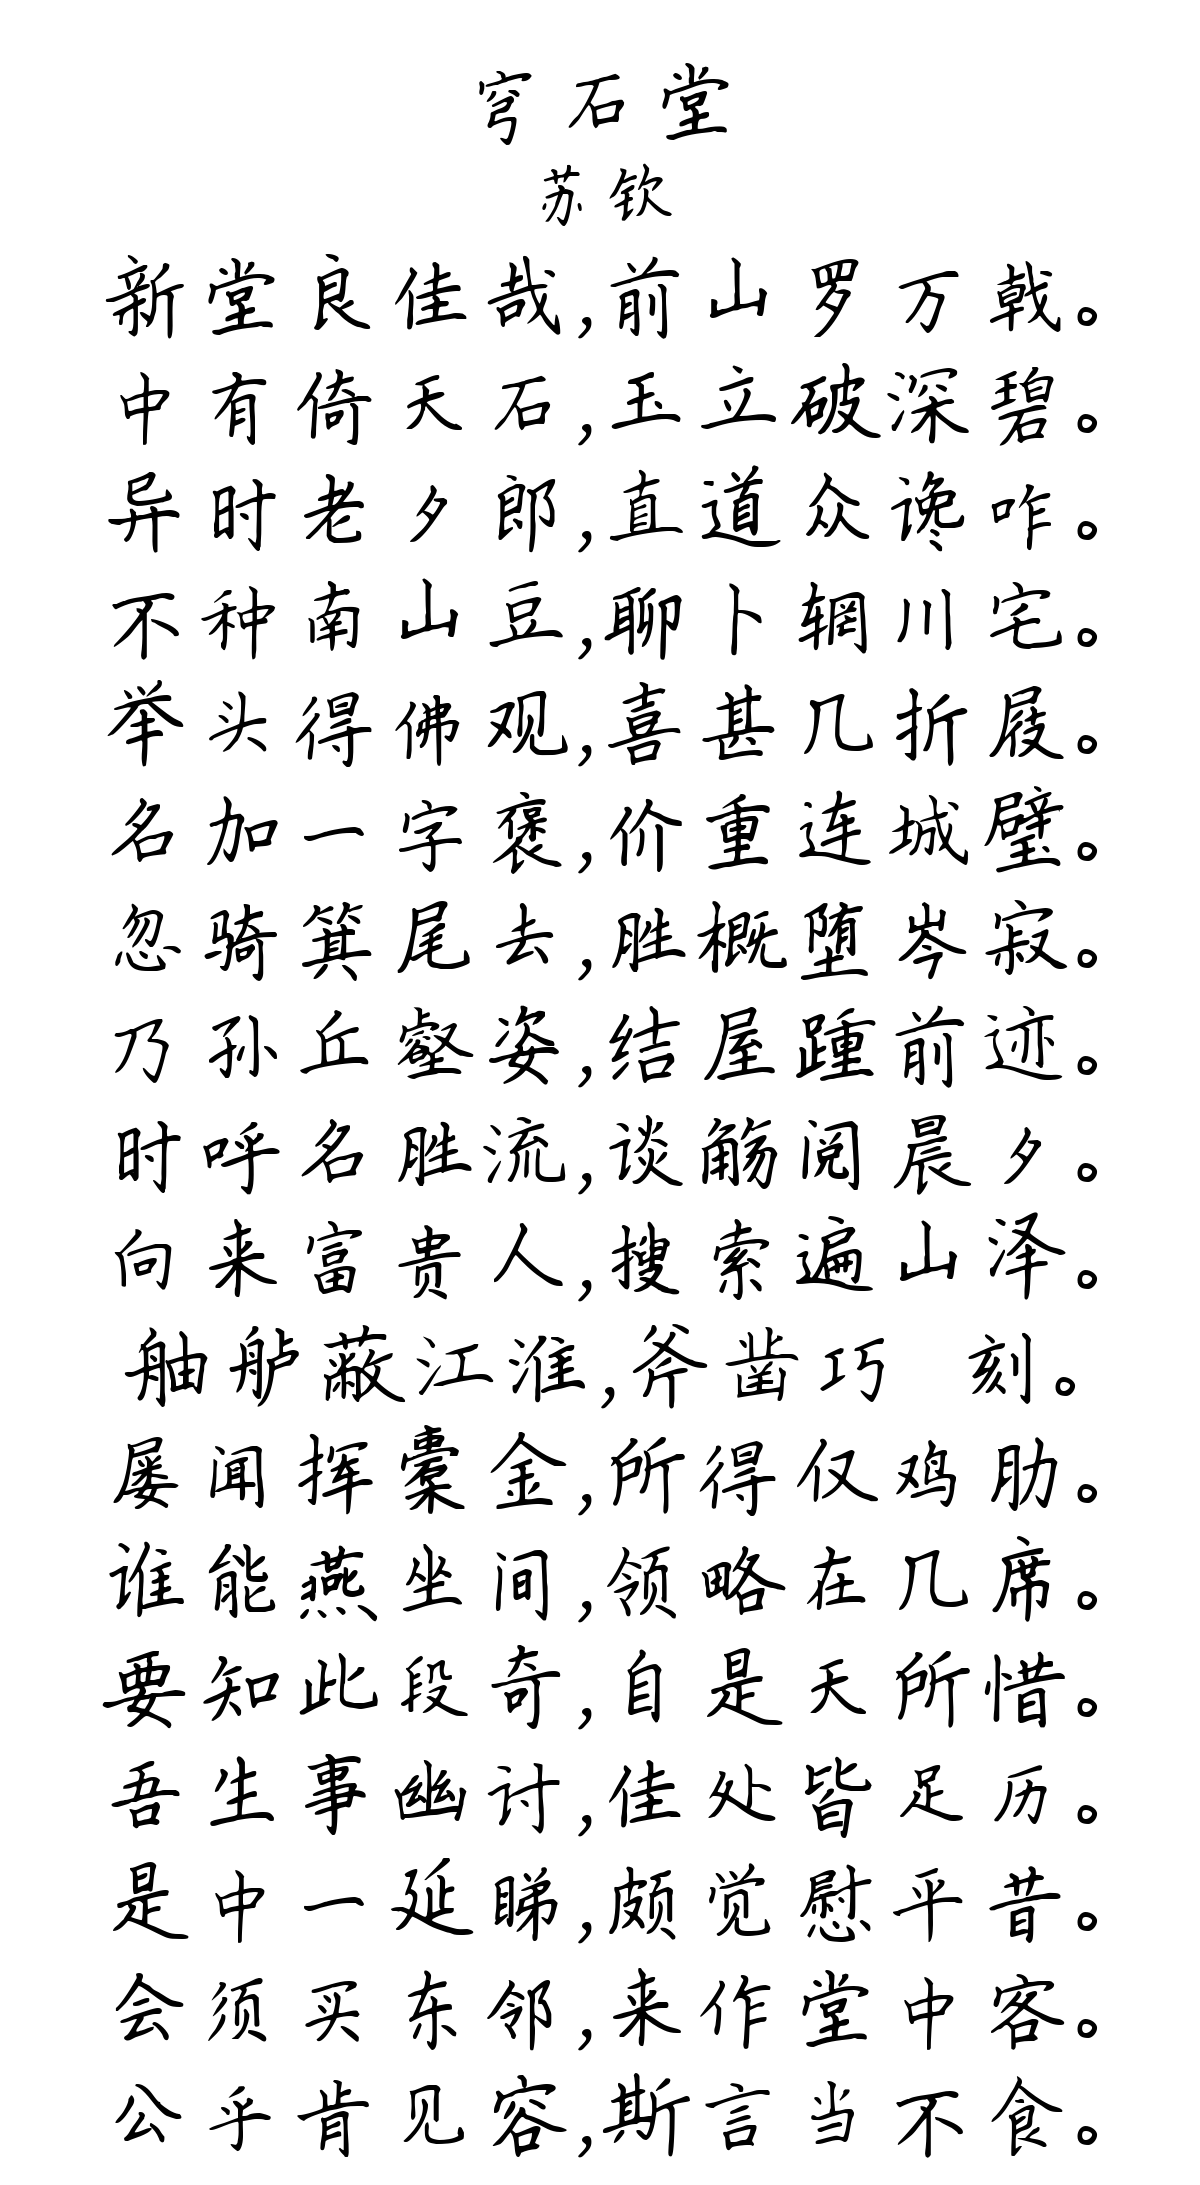 穹石堂
苏钦
新堂良佳哉,前山罗万戟。
中有倚天石,玉立破深碧。
异时老夕郎,直道众谗咋。
不种南山豆,聊卜辋川宅。
举头得佛观,喜甚几折屐。
名加一字褒,价重连城璧。
忽骑箕尾去,胜概堕岑寂。
乃孙丘壑姿,结屋踵前迹。
时呼名胜流,谈觞阅晨夕。
向来富贵人,搜索遍山泽。
舳舻蔽江淮,斧凿巧 刻。
屡闻挥橐金,所得仅鸡肋。
谁能燕坐间,领略在几席。
要知此段奇,自是天所惜。
吾生事幽讨,佳处皆足历。
是中一延睇,颇觉慰平昔。
会须买东邻,来作堂中客。
公乎肯见容,斯言当不食。